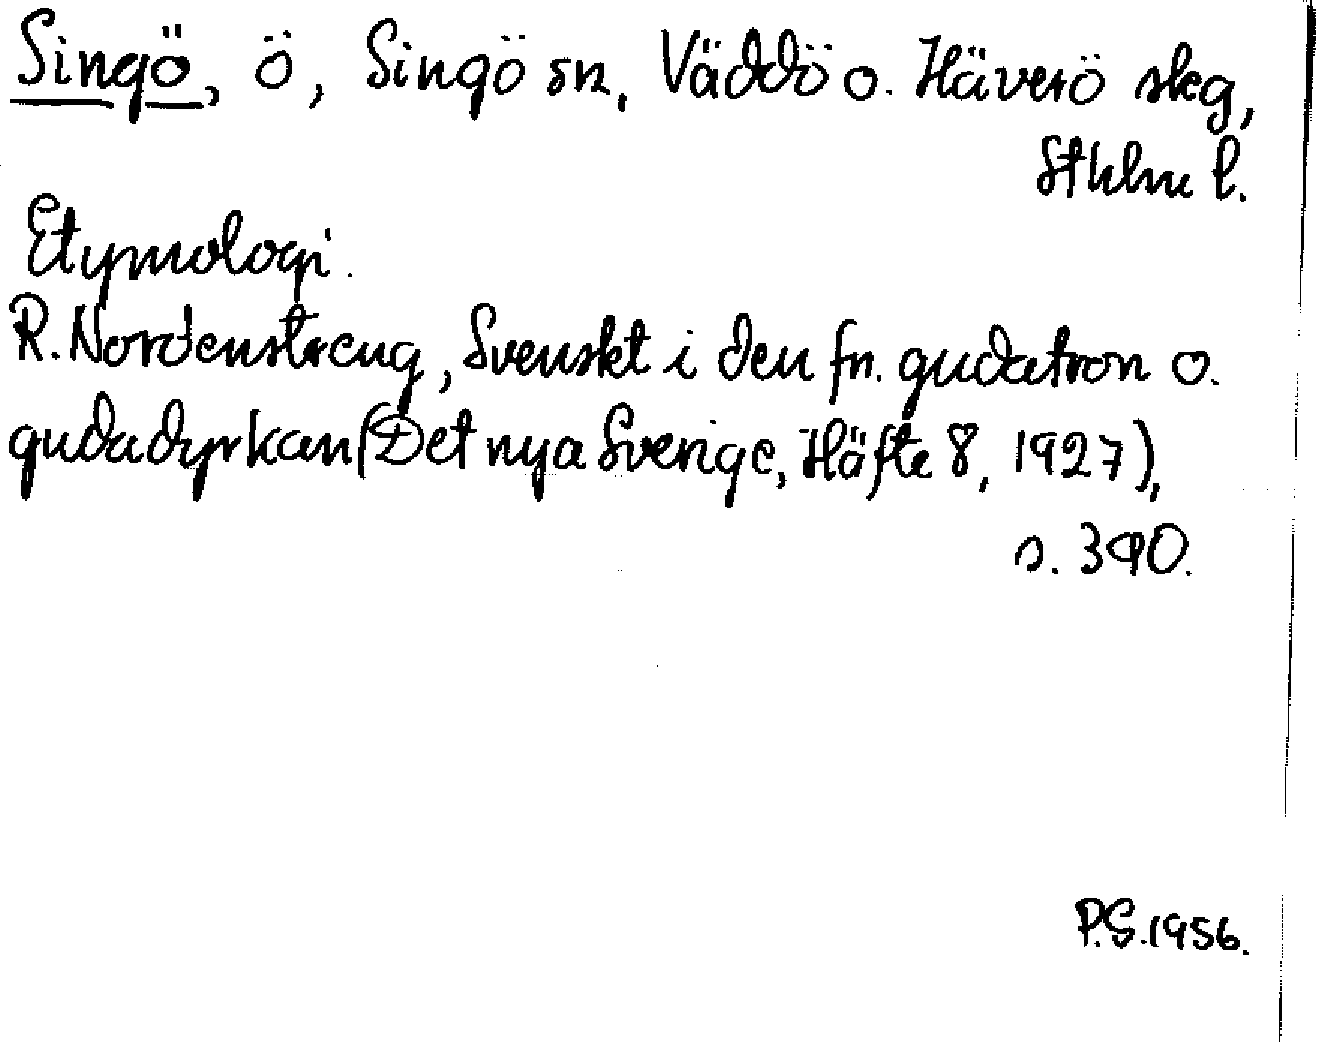 Singö, ö, Singö sn, Väddö o. Häverö skg,
Sthlm l.
Etymologi.
R. Nordenstreng, Svenskt i den fn. gudatron o.
gudadyrkan (Det nya Sverige, Häfte 8, 1927),
s. 390.
P.S. 1956.